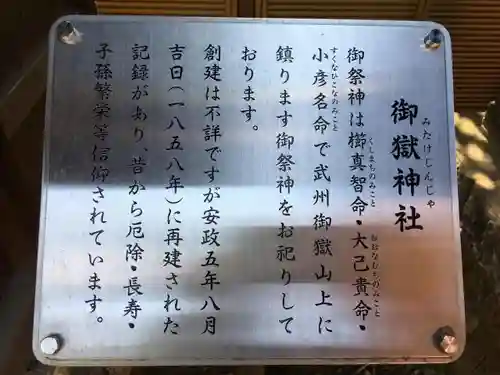 御獄神社
みたけじんじゃ
御祭神は櫛真智命・大己貴命・
くしまちのみこと
おおなむちのみこと
小彦名命で武州御獄山上に
すくなひこなのみこと
鎮ります御祭神をお祀りして
おります。
創建は不詳ですが安政五年八月
吉日（一八五八年）に再建された
記録があり、昔から厄除・長寿・
子孫繁栄等信仰されています。